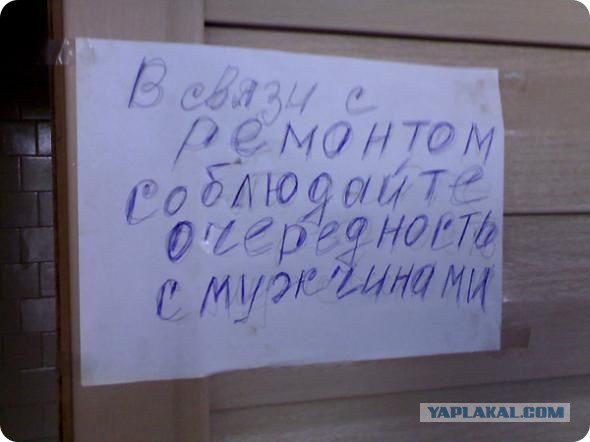 В связи с
ремонтом
соблюдайте
очередность
с мужчинами
YAPLAKAL.COM